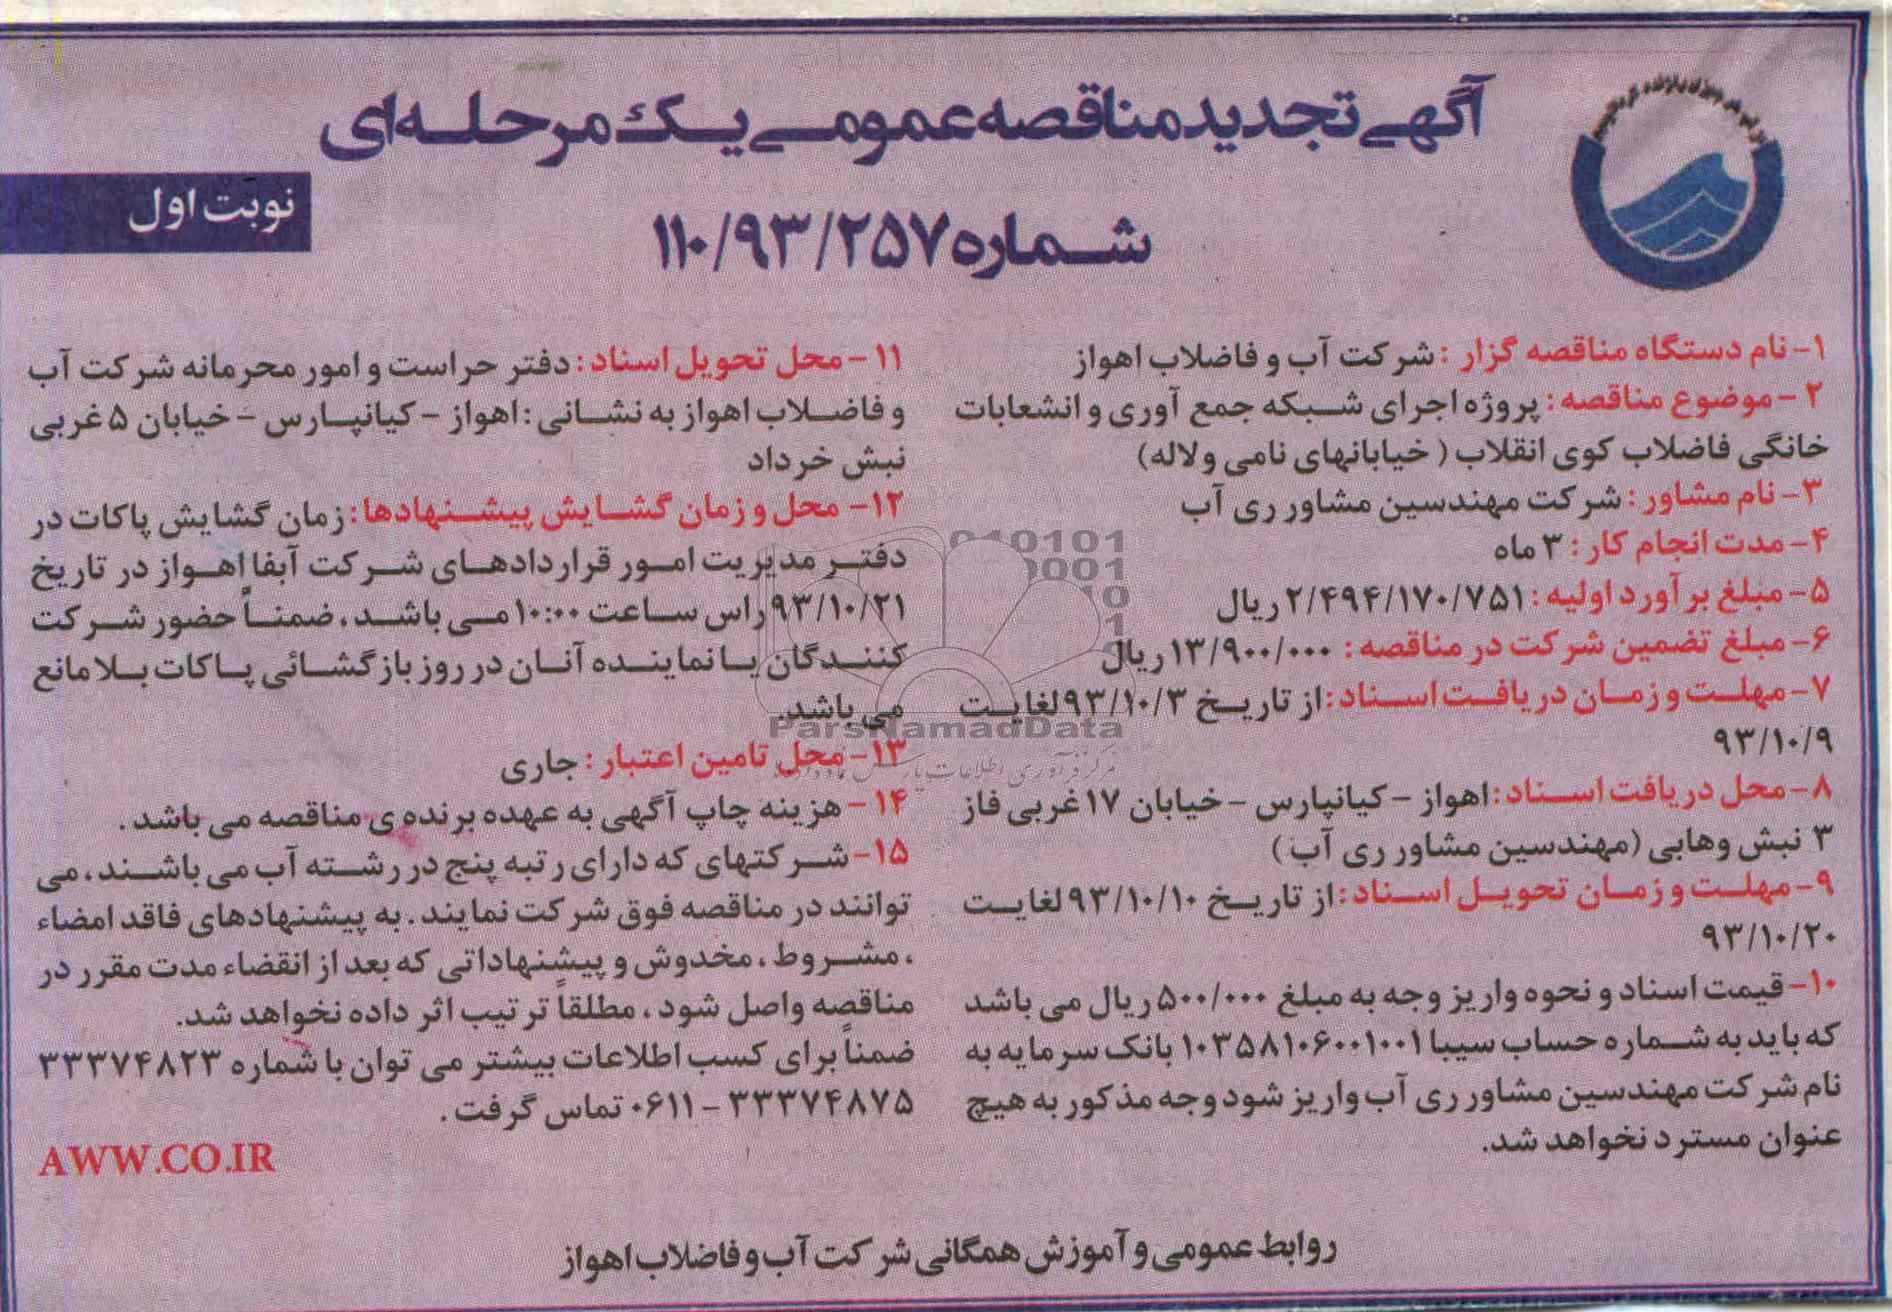 آگهی تجدید مناقصه عمومی یک مرحله‌ای
شماره ۱۱۰/۹۳/۲۵۷
نوبت اول
۱- نام دستگاه مناقصه گزار : شرکت آب و فاضلاب اهواز
۲ - موضوع مناقصه : پروژه اجرای شبکه جمع آوری و انشعابات
خانگی فاضلاب کوی انقلاب ( خیابانهای نامی و لاله)
۳- نام مشاور : شرکت مهندسین مشاور ری آب
۴- مدت انجام کار : ۳ ماه
۵- مبلغ برآورد اولیه : ۲/۴۹۴/۱۷۰/۷۵۱ ریال
۶- مبلغ تضمین شرکت در مناقصه : ۱۳/۹۰۰/۰۰۰ ریال
۷- مهلت و زمان دریافت اسناد : از تاریخ ۹۳/۱۰/۳ لغایت
۹۳/۱۰/۹
۸- محل دریافت اسناد : اهواز - کیانپارس - خیابان ۱۷ غربی فاز
۳ نبش وهابی (مهندسین مشاور ری آب )
۹- مهلت و زمان تحویل اسناد : از تاریخ ۹۳/۱۰/۱۰ لغایت
۹۳/۱۰/۲۰
۱۰- قیمت اسناد و نحوه واریز وجه به مبلغ ۵۰۰/۰۰۰ ریال می باشد
که باید به شماره حساب سیبا ۱۰۳۵۸۱۰۶۰۰۱۰۰۱ بانک سرمایه به
نام شرکت مهندسین مشاور ری آب واریز شود وجه مذکور به هیچ
عنوان مسترد نخواهد شد.
۱۱ - محل تحویل اسناد : دفتر حراست و امور محرمانه شرکت آب
و فاضلاب اهواز به نشانی : اهواز - کیانپارس - خیابان ۵ غربی
نبش خرداد
۱۲- محل و زمان گشایش پیشنهادها : زمان گشایش پاکات در
دفتر مدیریت امور قراردادهای شرکت آبفا اهواز در تاریخ
۹۳/۱۰/۲۱ راس ساعت ۱۰:۰۰ می باشد ، ضمناً حضور شرکت
کنندگان یا نماینده آنان در روز بازگشائی پاکات بلامانع
می باشد.
۱۳- محل تامین اعتبار : جاری
۱۴ - هزینه چاپ آگهی به عهده برنده ی مناقصه می باشد .
۱۵- شرکتهای که دارای رتبه پنج در رشته آب می باشند ، می
توانند در مناقصه فوق شرکت نمایند . به پیشنهادهای فاقد امضاء
، مشروط ، مخدوش و پیشنهاداتی که بعد از انقضاء مدت مقرر در
مناقصه واصل شود ، مطلقاً ترتیب اثر داده نخواهد شد.
ضمناً برای کسب اطلاعات بیشتر می توان با شماره ۳۳۳۷۴۸۲۳
۳۳۳۷۴۸۷۵ - ۰۶۱۱ تماس گرفت .
AWW.CO.IR
روابط عمومی و آموزش همگانی شرکت آب و فاضلاب اهواز
ParsNamadData